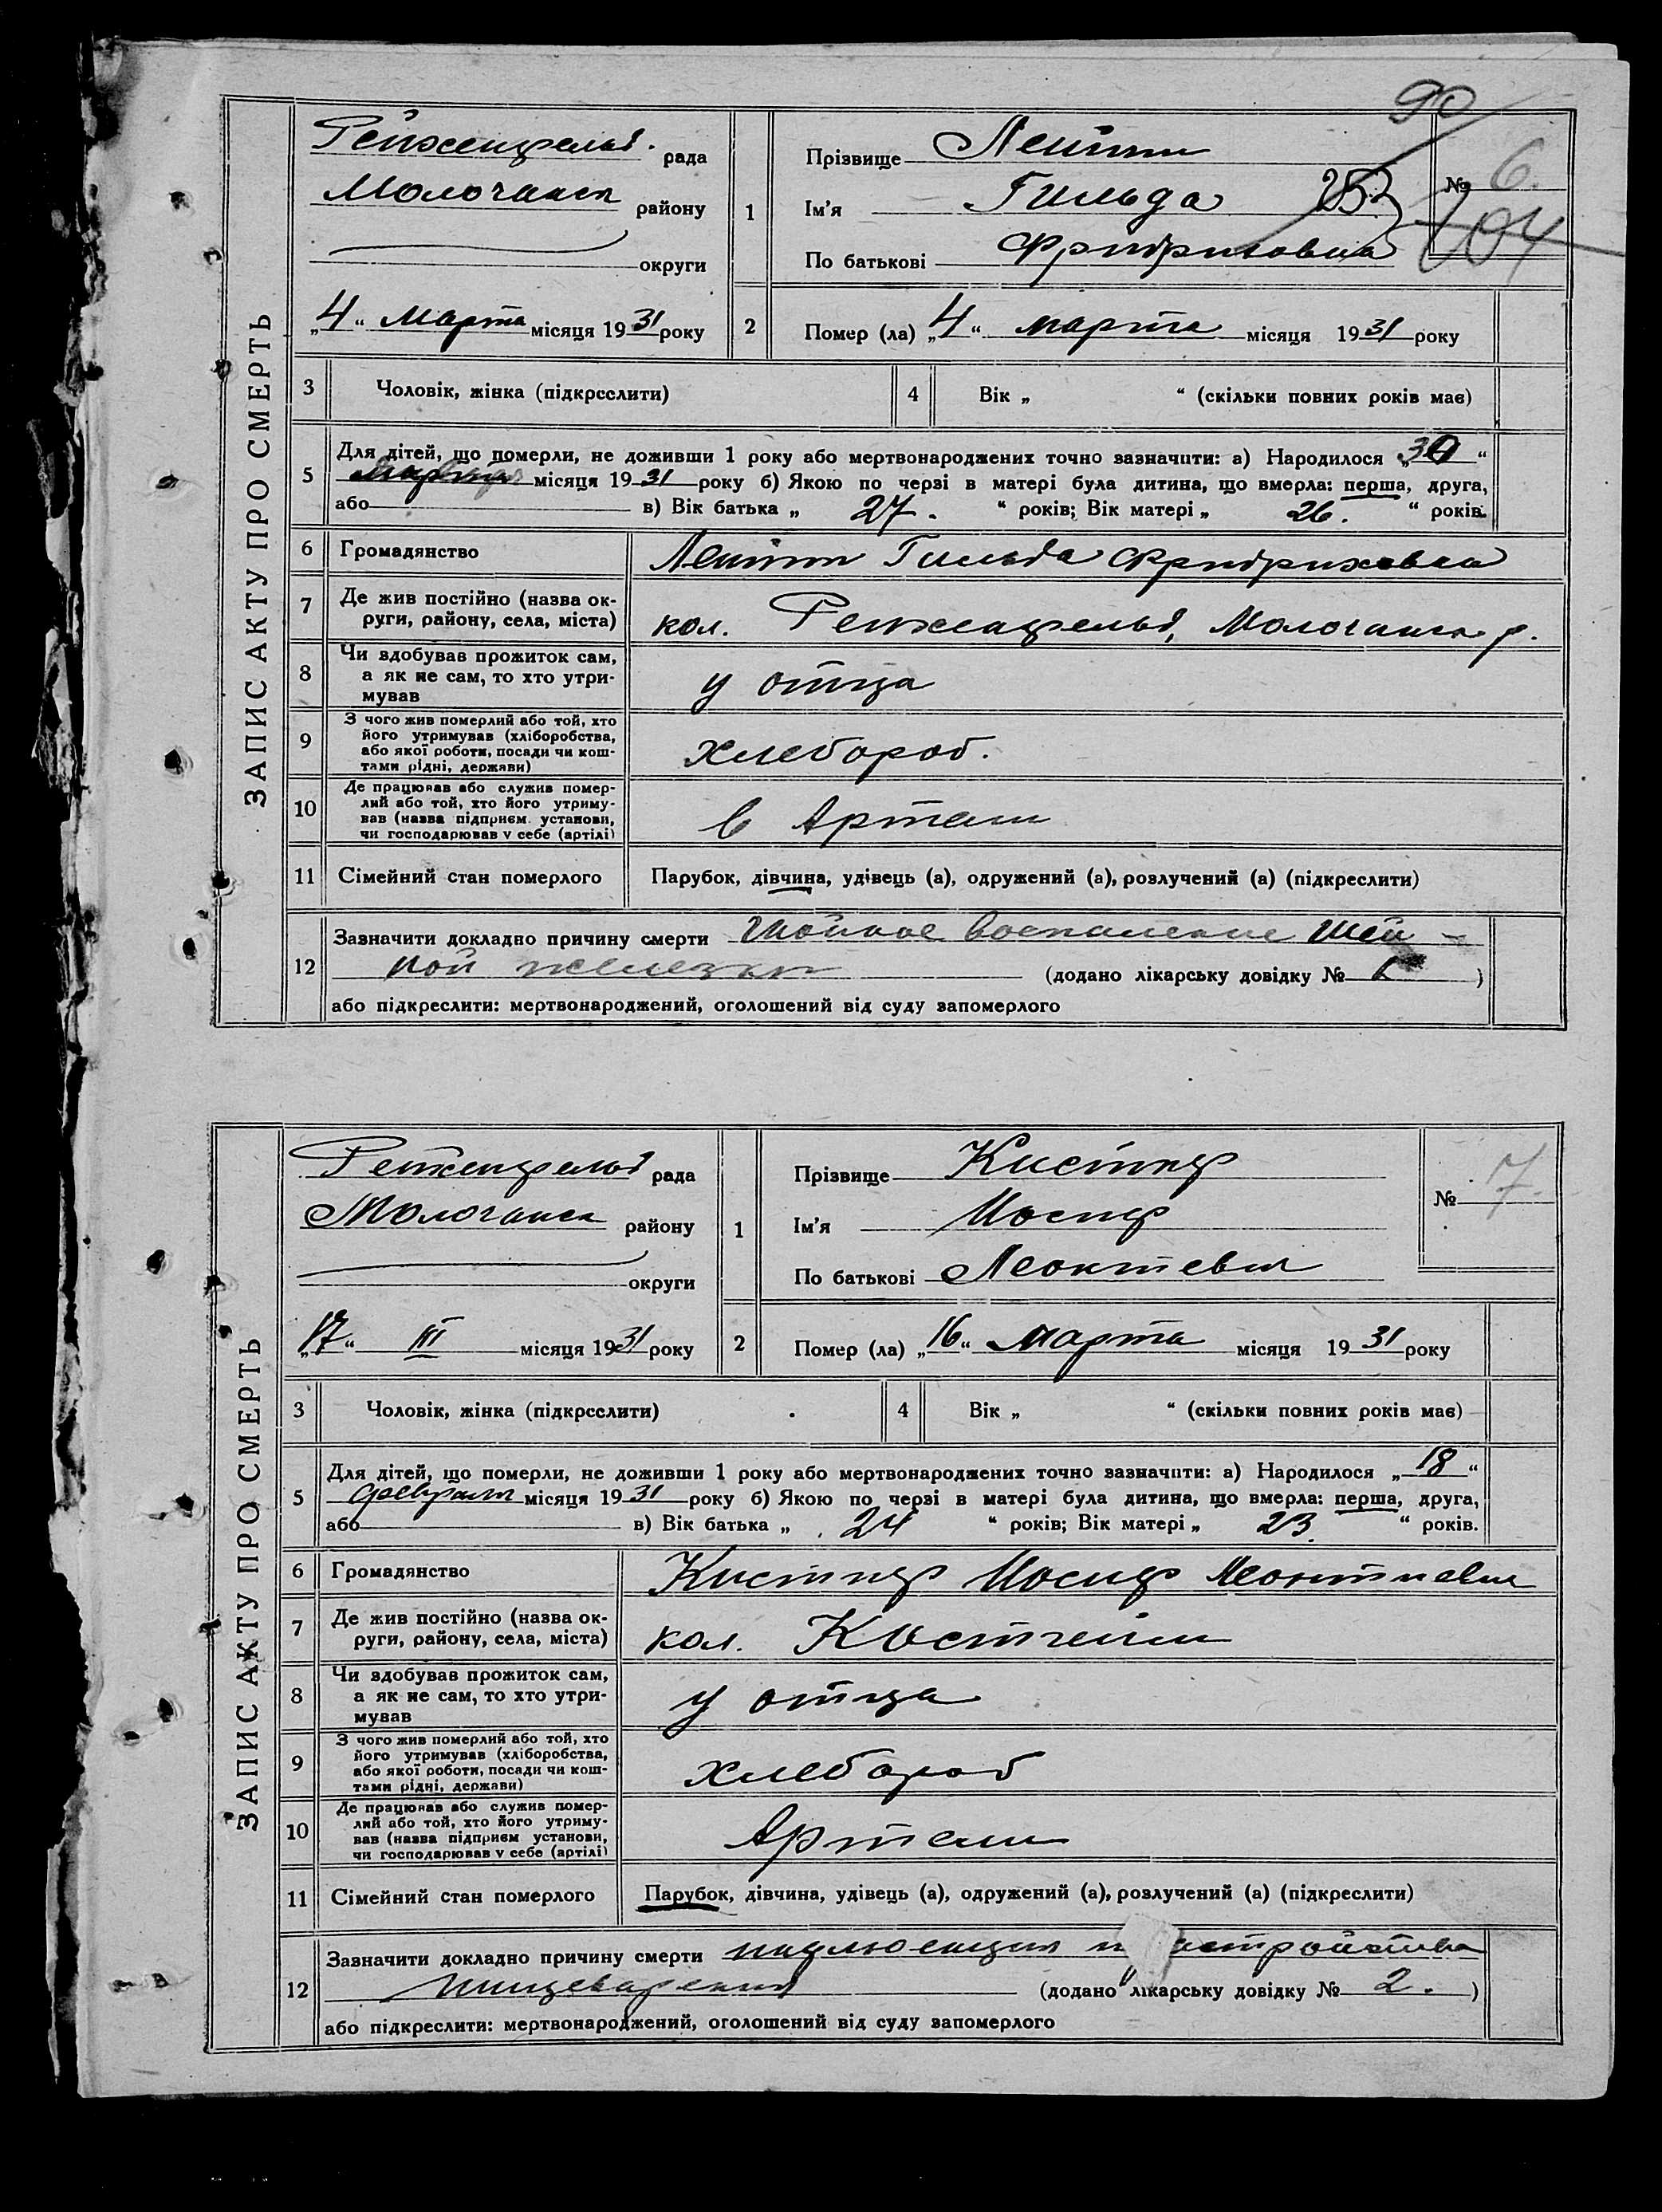 90
ЗАПИС АКТУ ПРО СМЕРТЬ
Рейхенфельд. рада
Молочанск району
округи
„4“ марта місяця 1931 року
1
Прізвище Лейтт
Ім'я Гильда 253
По батькові Фридриховна
№ 6.
104
2 Помер (ла) „4“ марта місяця 1931 року
3 Чоловік, жінка (підкреслити) 4 Вік „ “ (скільки повних років має)
5 Для дітей, що померли, не доживши 1 року або мертвонароджених точно зазначити: а) Народилося „ “
місяця 1931 року б) Якою по черзі в матері була дитина, що вмерла: перша, друга,
або в) Вік батька „ 27. “ років; Вік матері „ 26. “ років.
6 Громадянство Лейтт Гильда Фридриховна
7 Де жив постійно (назва ок-
руги, району, села, міста) кол. Рейхенфельд, Молочанск. р.
8 Чи здобував прожиток сам,
а як не сам, то хто утри-
мував у отца
9 З чого жив померлий або той, хто
його утримував (хліборобства,
або якої роботи, посади чи кош-
тами рідні, держави) хлебороб.
10 Де працював або служив помер-
лий або той, хто його утриму-
вав (назва підприєм. установи,
чи господарював у себе (артілі) в Артели
11 Сімейний стан померлого Парубок, дівчина, удівець (а), одружений (а), розлучений (а) (підкреслити)
12 Зазначити докладно причину смерти воспаление шей-
ной железки (додано лікарську довідку № )
або підкреслити: мертвонароджений, оголошений від суду запомерлого
ЗАПИС АКТУ ПРО СМЕРТЬ
Рейхенфельд рада
Молочанск району
округи
„17“ III місяця 1931 року
1
Прізвище Кистнер
Ім'я Иосиф
По батькові Леонтевич
№ 7.
2 Помер (ла) „16“ марта місяця 1931 року
3 Чоловік, жінка (підкреслити) 4 Вік „ “ (скільки повних років має)
5 Для дітей, що померли, не доживши 1 року або мертвонароджених точно зазначити: а) Народилося „18“
февраля місяця 1931 року б) Якою по черзі в матері була дитина, що вмерла: перша, друга,
або в) Вік батька „ 24 “ років; Вік матері „ 23. “ років.
6 Громадянство Кистнер Иосиф Леонтиевич
7 Де жив постійно (назва ок-
руги, району, села, міста) кол. Костгейм
8 Чи здобував прожиток сам,
а як не сам, то хто утри-
мував у отца
9 З чого жив померлий або той, хто
його утримував (хліборобства,
або якої роботи, посади чи кош-
тами рідні, держави) хлебороб
10 Де працював або служив помер-
лий або той, хто його утриму-
вав (назва підприєм установи,
чи господарював у себе (артілі) Артели
11 Сімейний стан померлого Парубок, дівчина, удівець (а), одружений (а), розлучений (а) (підкреслити)
12 Зазначити докладно причину смерти инфлюенция и растройства
пищеварения (додано лікарську довідку № 2. )
або підкреслити: мертвонароджений, оголошений від суду запомерлого